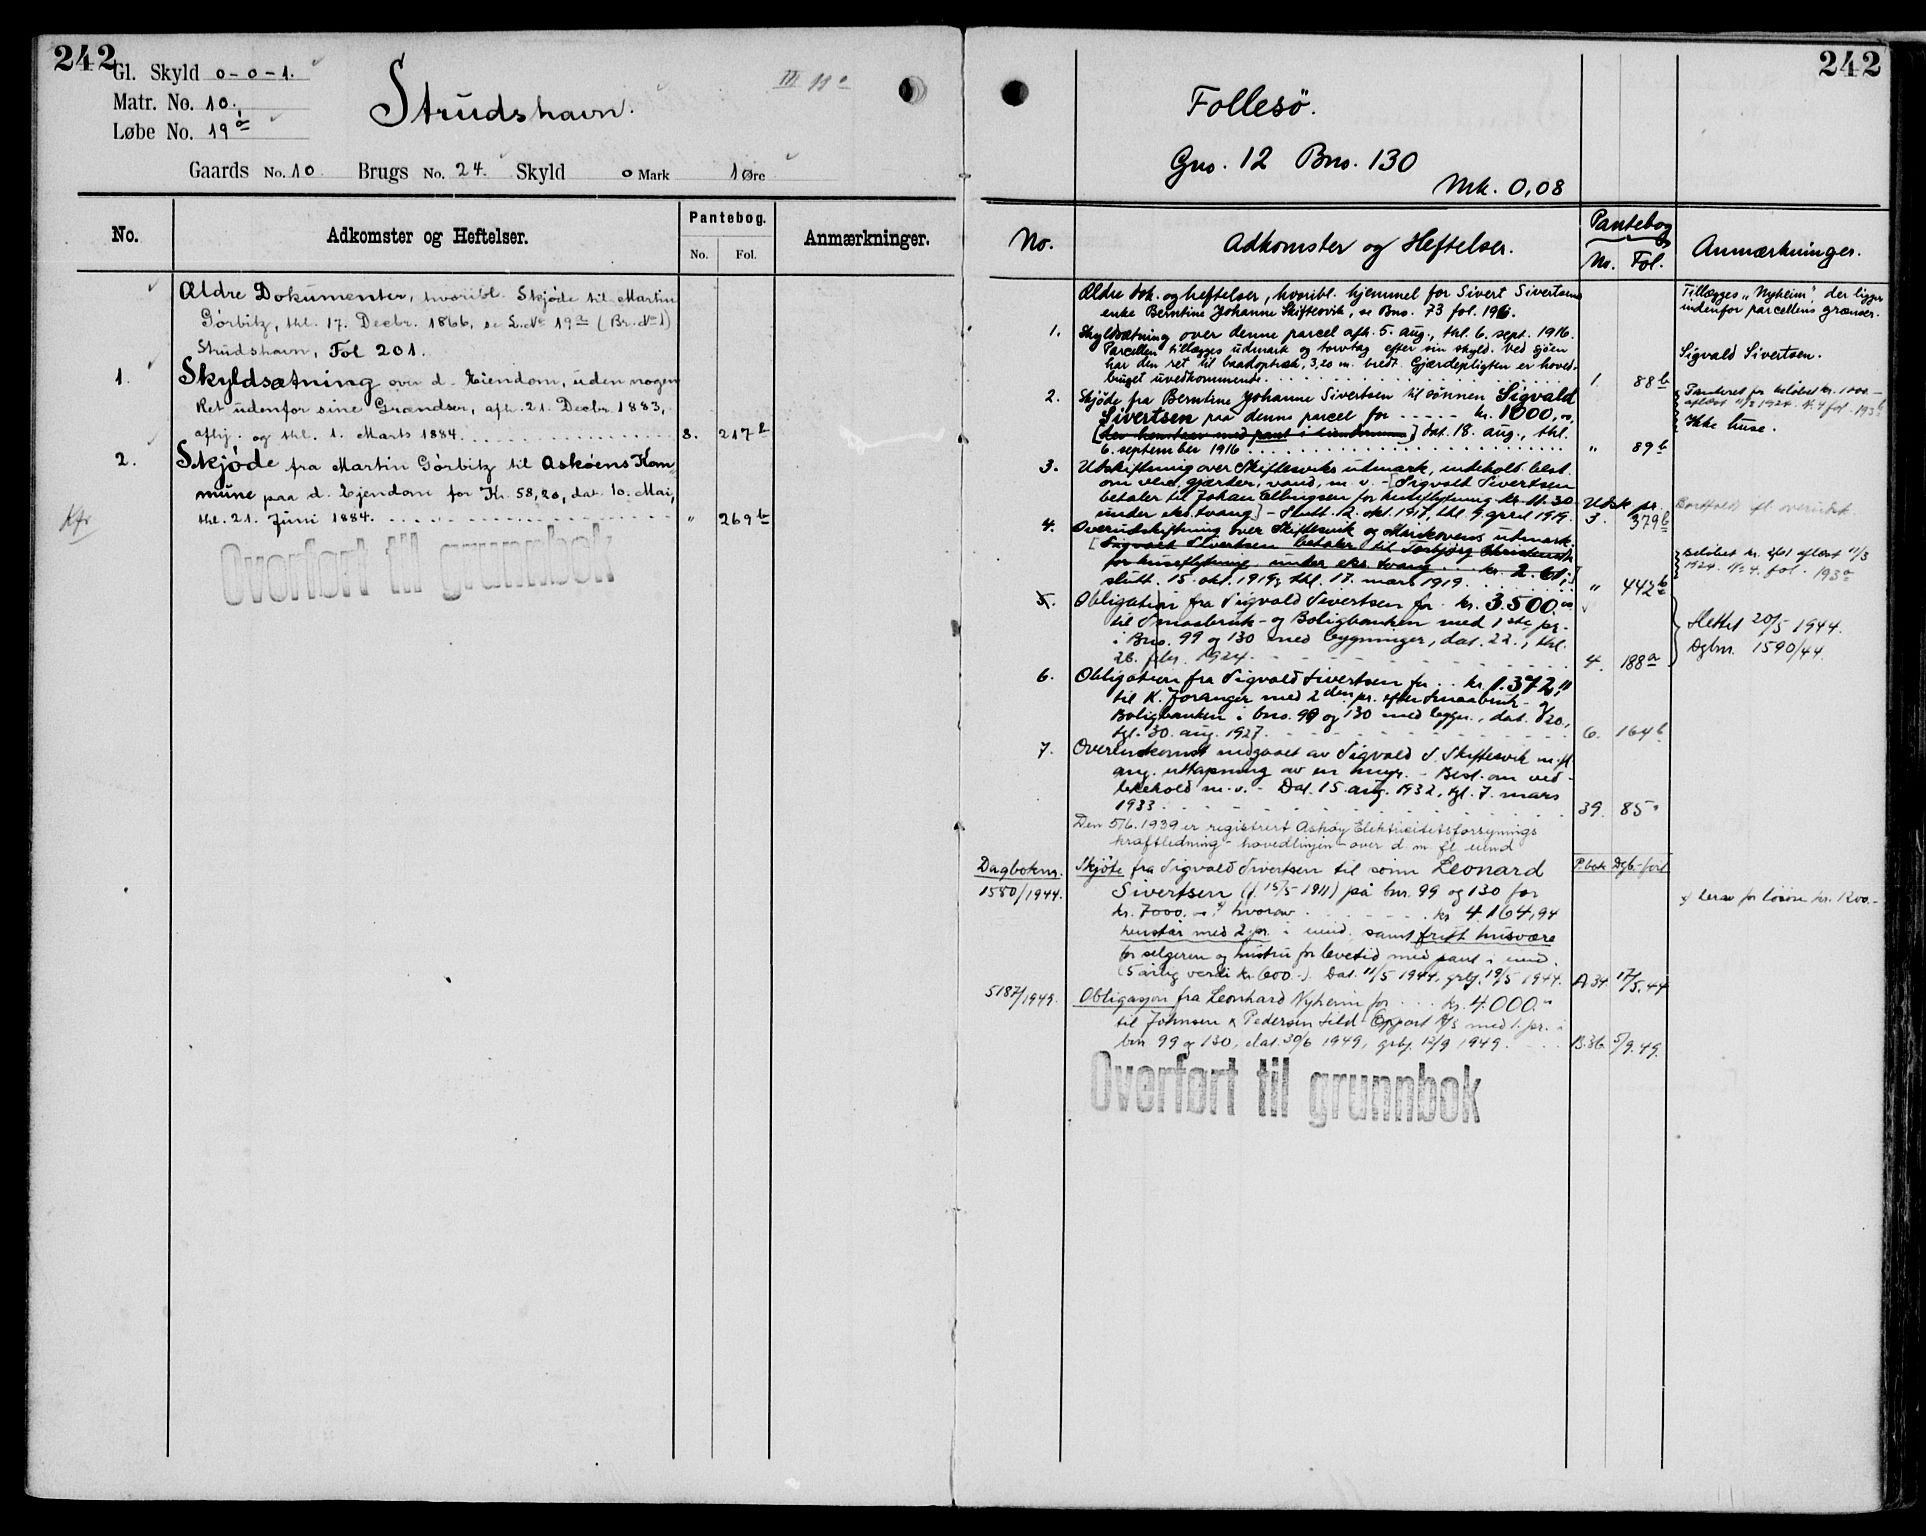 242
Gl. Skyld 0-0-1.
Matr. No. 10.
Løbe No. 19 a
Strudshavn.
III 11
Gaards No. 10 Brugs No. 24. Skyld 0 Mark 1 Øre
No. Adkomster og Heftelser. Pantebog. No. Fol. Anmærkninger.
Ældre Dokumenter, hvoribl. Skjøde til Martin
Görbitz, thl. 17. Decbr. 1866, se L.No 19 a (Br. No 1)
Strudshavn, Fol 201.
1. Skyldsætning over d. Eiendom, uden nogen
Ret udenfor sine Grændser, afh. 21. Decbr. 1883,
afhj. og thl. 1. Marts 1884. 8. 217 b
2. Skjøde fra Martin Görbitz til Askøens Kom
mune paa d. Ejendom for Kr. 58,20, dat. 10. Mai,
thl. 21. Juni 1884. " 269 b
Overført til grunnbok
242
Follesö.
Gno. 12 Bno. 130
Mk. 0,08
No. Adkomster og Heftelser. Pantebog No. Fol. Anmærkninger.
Ældre dok. og heftelser, hvoribl. hjemmel for Sivert Sivertsens
enke Berntine Johanne Skiftesvik, se Bno. 73 fol. 196.
Tillægges "Nyheim", der ligger
indenfor parcellens grænser.
1. Skyldsætning over denne parcel afh. 5. aug., thl. 6. sept. 1916.
Parcellen tillægges udmark og torvtag efter sin skyld. Ved sjöen
har den ret til baadoptræk, 3,20 m. bredt. Gjærdepligten er hoved-
bruget uvedkommende. 1. 88 b
Sigvald Sivertsen.
2. Skjøde fra Berntine Johanne Sivertsen til sønnen Sigvald
Sivertsen paa denne parcel for kr. 1000,00
dat. 18. aug., thl.
6. september 1916 " 89 b
Panteret for beløbet kr. 1000.-
aflöst 11/3 1924. N. 4 fol. 193 b
Ikke huse.
3. Utskiftning over Skiftesviks utmark, indehold. best.
om veie, gjærder, vand, m. v. - [Sigvald Sivertsen
betaler til Johan Ellingsen for huseflytning kr. 11.30
under eks. tvang] - Slutt. 12. okt. 1917, thl. 9. april 1919. Udsk. pr. 3. 379 b
4. Overutskiftning over Skiftesvik og Marikovens utmark.
[Sigvald Sivertsen betaler til Torbjørg
for huseflytning under eks. tvang kr. 2.61.]
slutt. 15. okt. 1919, thl. 17. mars 1919. " 442 b
Beløbet kr. 2,61 aflöst 11/3
1924. N: 4. fol. 193 a
5. Obligation fra Sigvald Sivertsen for kr. 3.500.00
til Smaabruk- og Boligbanken med 1ste pr.
i Bno. 99 og 130 med bygninger, dat. 22., thl.
26. febr. 1924. 4. 188 a
Slettet 20/5 1944.
Dgbnr. 1590/44.
6. Obligation fra Sigvald Sivertsen for kr. 1.372,"
til K. Joranger med 2den pr. efter Smaabruk- og
Boligbanken i bno. 99 og 130 med bygn., dat. 20.,
tgl. 30. aug. 1927. 6. 164 b
7. Overenskomst indgaaet av Sigvald S. Skiftesvik m. fl.
ang. uttapning av en myr. - Best. om ved-
likehold m. v. - Dat. 15. aug. 1932, tgl. 7. mars
1933. 39. 85
Den 5/6. 1939 er registrert Askøy Elektricitetsforsynings
kraftledning - hovedlinjen - over d. m. fl. eiend
Dagboknr. P.bok Dgb.-förd
1580/1944. Skjöte fra Sigvald Sivertsen til sönn Leonard
Sivertsen (f. 15/5 1911) på bnr. 99 og 130 for
kr. 7000.- x) hvorav kr. 4.164,94
henstår med 2 pr. i eiend. samt fritt husvære
for selgeren og hustru for levetid med pant i eiend.
(5 årlig verdi kr. 600.-). Dat. 11/5 1944, grbf. 19/5 1944. A 34. 17/5.44
x) herav for lösöre kr. 1200.-
5187/1949. Obligasjon fra Leonhard Nyheim for kr. 4.000.-
til Johnsen & Pedersen Sild-Export A/S med 1. pr. i
bnr 99 og 130, dat. 30/6 1949, grbf. 12/9 1949. B.36. 5/9.49.
Overført til grunnbok